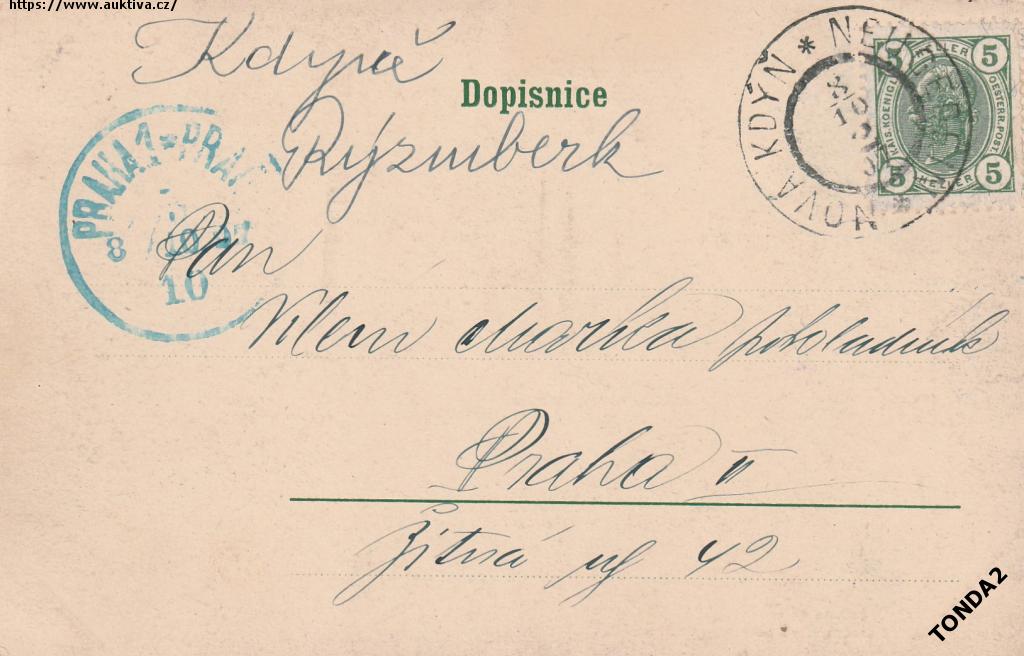 https://www.auktiva.cz/
Kdyně
Dopisnice
Rýzmberk
NOVÁ KDÝŇ * NEU
8
10
5 HELLER 5
KAIS. KOENIGL. OESTERR. POST.
5 HELLER 5
PRAHA 1 - PRA
8
10
Pan
Klem Marka pokladník
Praha II
Žitná ul 42
TONDA2